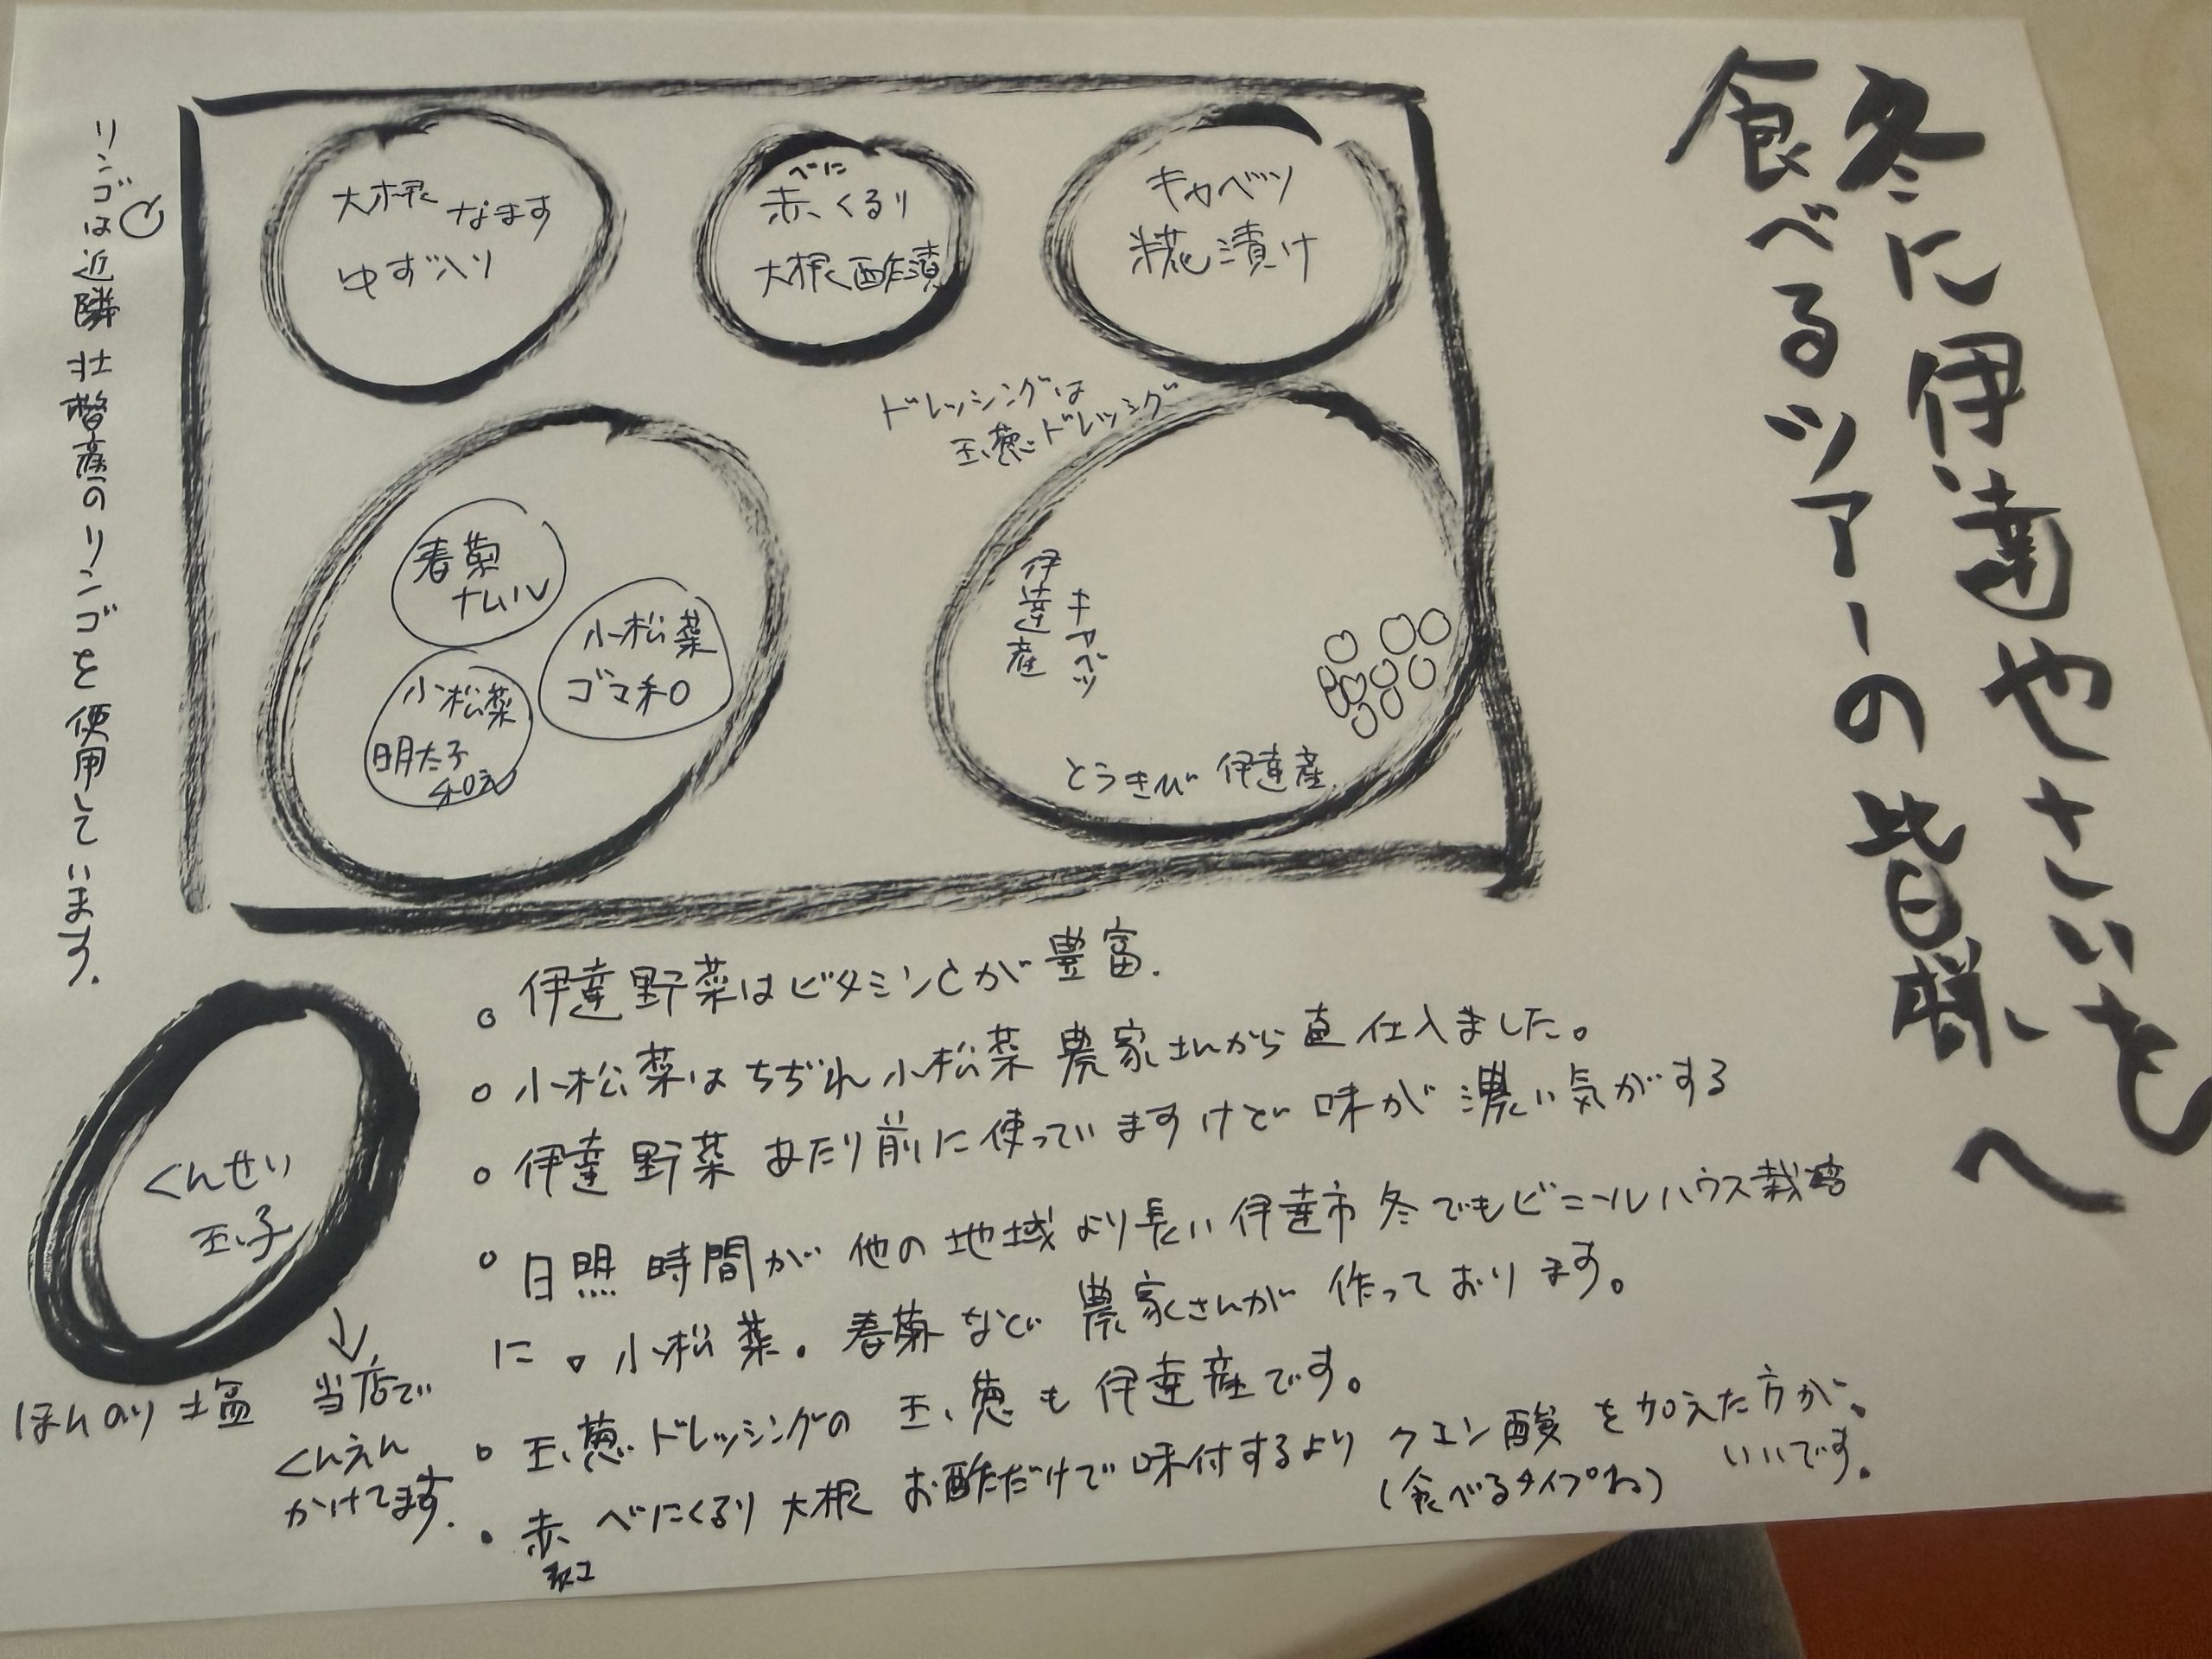 冬に伊達やさいを
食べるツアーの皆様へ
キャベツ
糀漬け
べに
赤くるり
大根酢漬
大根なます
ゆず入り
ドレッシングは
玉葱ドレッシング
キャベツ
伊達産
とうきび 伊達産
春菊
ナムル
小松菜
ゴマ和
小松菜
明太子
和え
リンゴは近隣 壮瞥産のリンゴを使用しています.
くんせい
玉子
ほんのり塩
当店で
くんえん
かけてます.
。伊達野菜はビタミンとが豊富.
。小松菜はちぢれ小松菜 農家さんから直仕入ました。
。伊達野菜 あたり前に使っていますけど 味が濃い気がする
。日照時間が 他の地域より長い伊達市 冬でもビニールハウス栽培
に。小松菜。春菊など 農家さんが 作っております。
。玉葱ドレッシングの 玉葱も伊達産です。
・赤べにくるり大根 お酢だけで味付するより クエン酸を加えた方が、
紅
(食べるタイプね)
いいです。